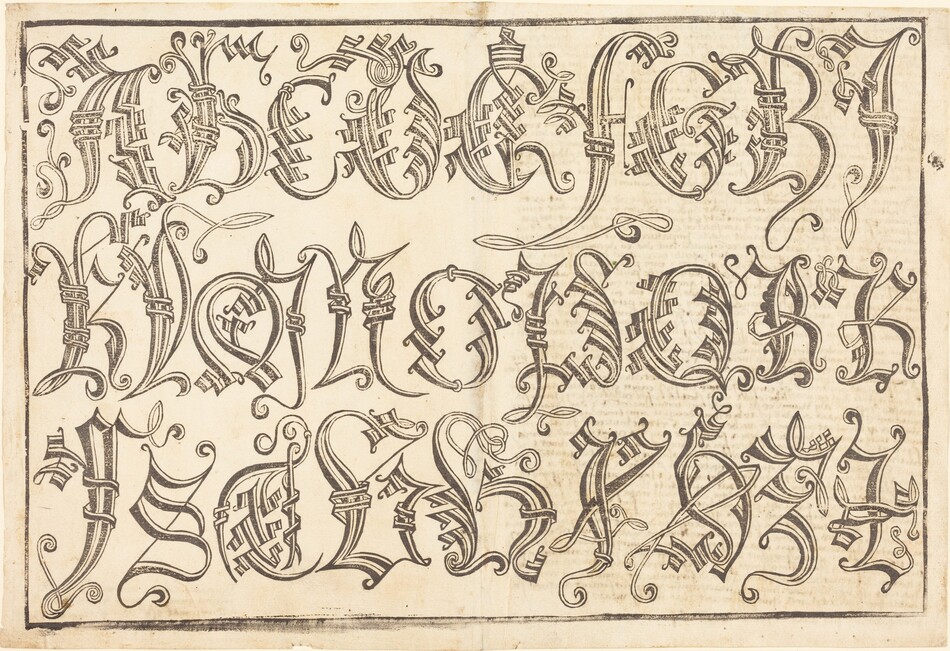 A B C D E F G H I
K L M N O P Q R R
S S T V X Z